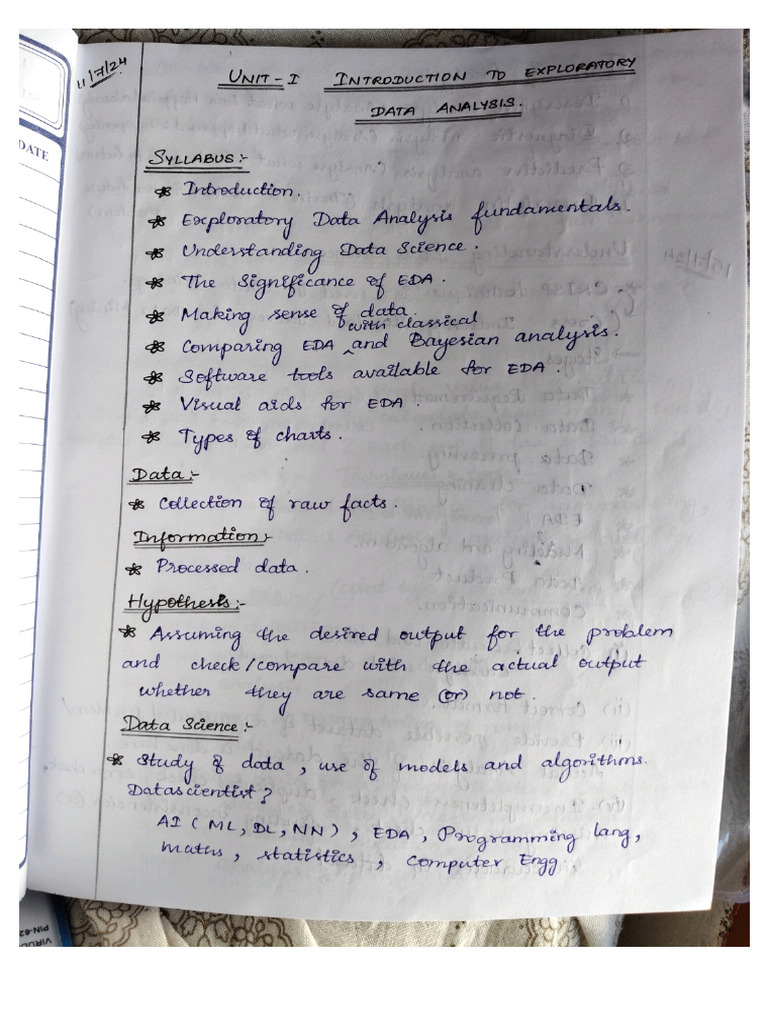 11/7/24
UNIT-I INTRODUCTION TO EXPLORATORY
DATA ANALYSIS.
SYLLABUS:-
* Introduction.
* Exploratory Data Analysis fundamentals.
* Understanding Data Science.
* The Significance of EDA.
* Making sense of data.
with classical
* Comparing EDA ^ and Bayesian analysis.
* Software tools available for EDA.
* Visual aids for EDA.
* Types of charts.
Data:-
* Collection of raw facts.
Information:-
* Processed data.
Hypothesis:-
* Assuming the desired output for the problem
and check/compare with the actual output
whether they are same (or) not.
Data Science:-
* Study of data, use of models and algorithms.
Datascientist?
AI (ML, DL, NN), EDA, Programming lang,
maths, statistics, Computer Engg.
DATE